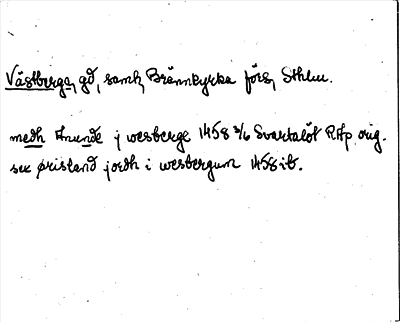 Västberga, gd, samt, Brännkyrka förs, Sthlm.
medh Anunde j wesberge 1458 3/6 Svartalöt RAp orig.
sex ørisland jordh i wesbergum 1458 ib.